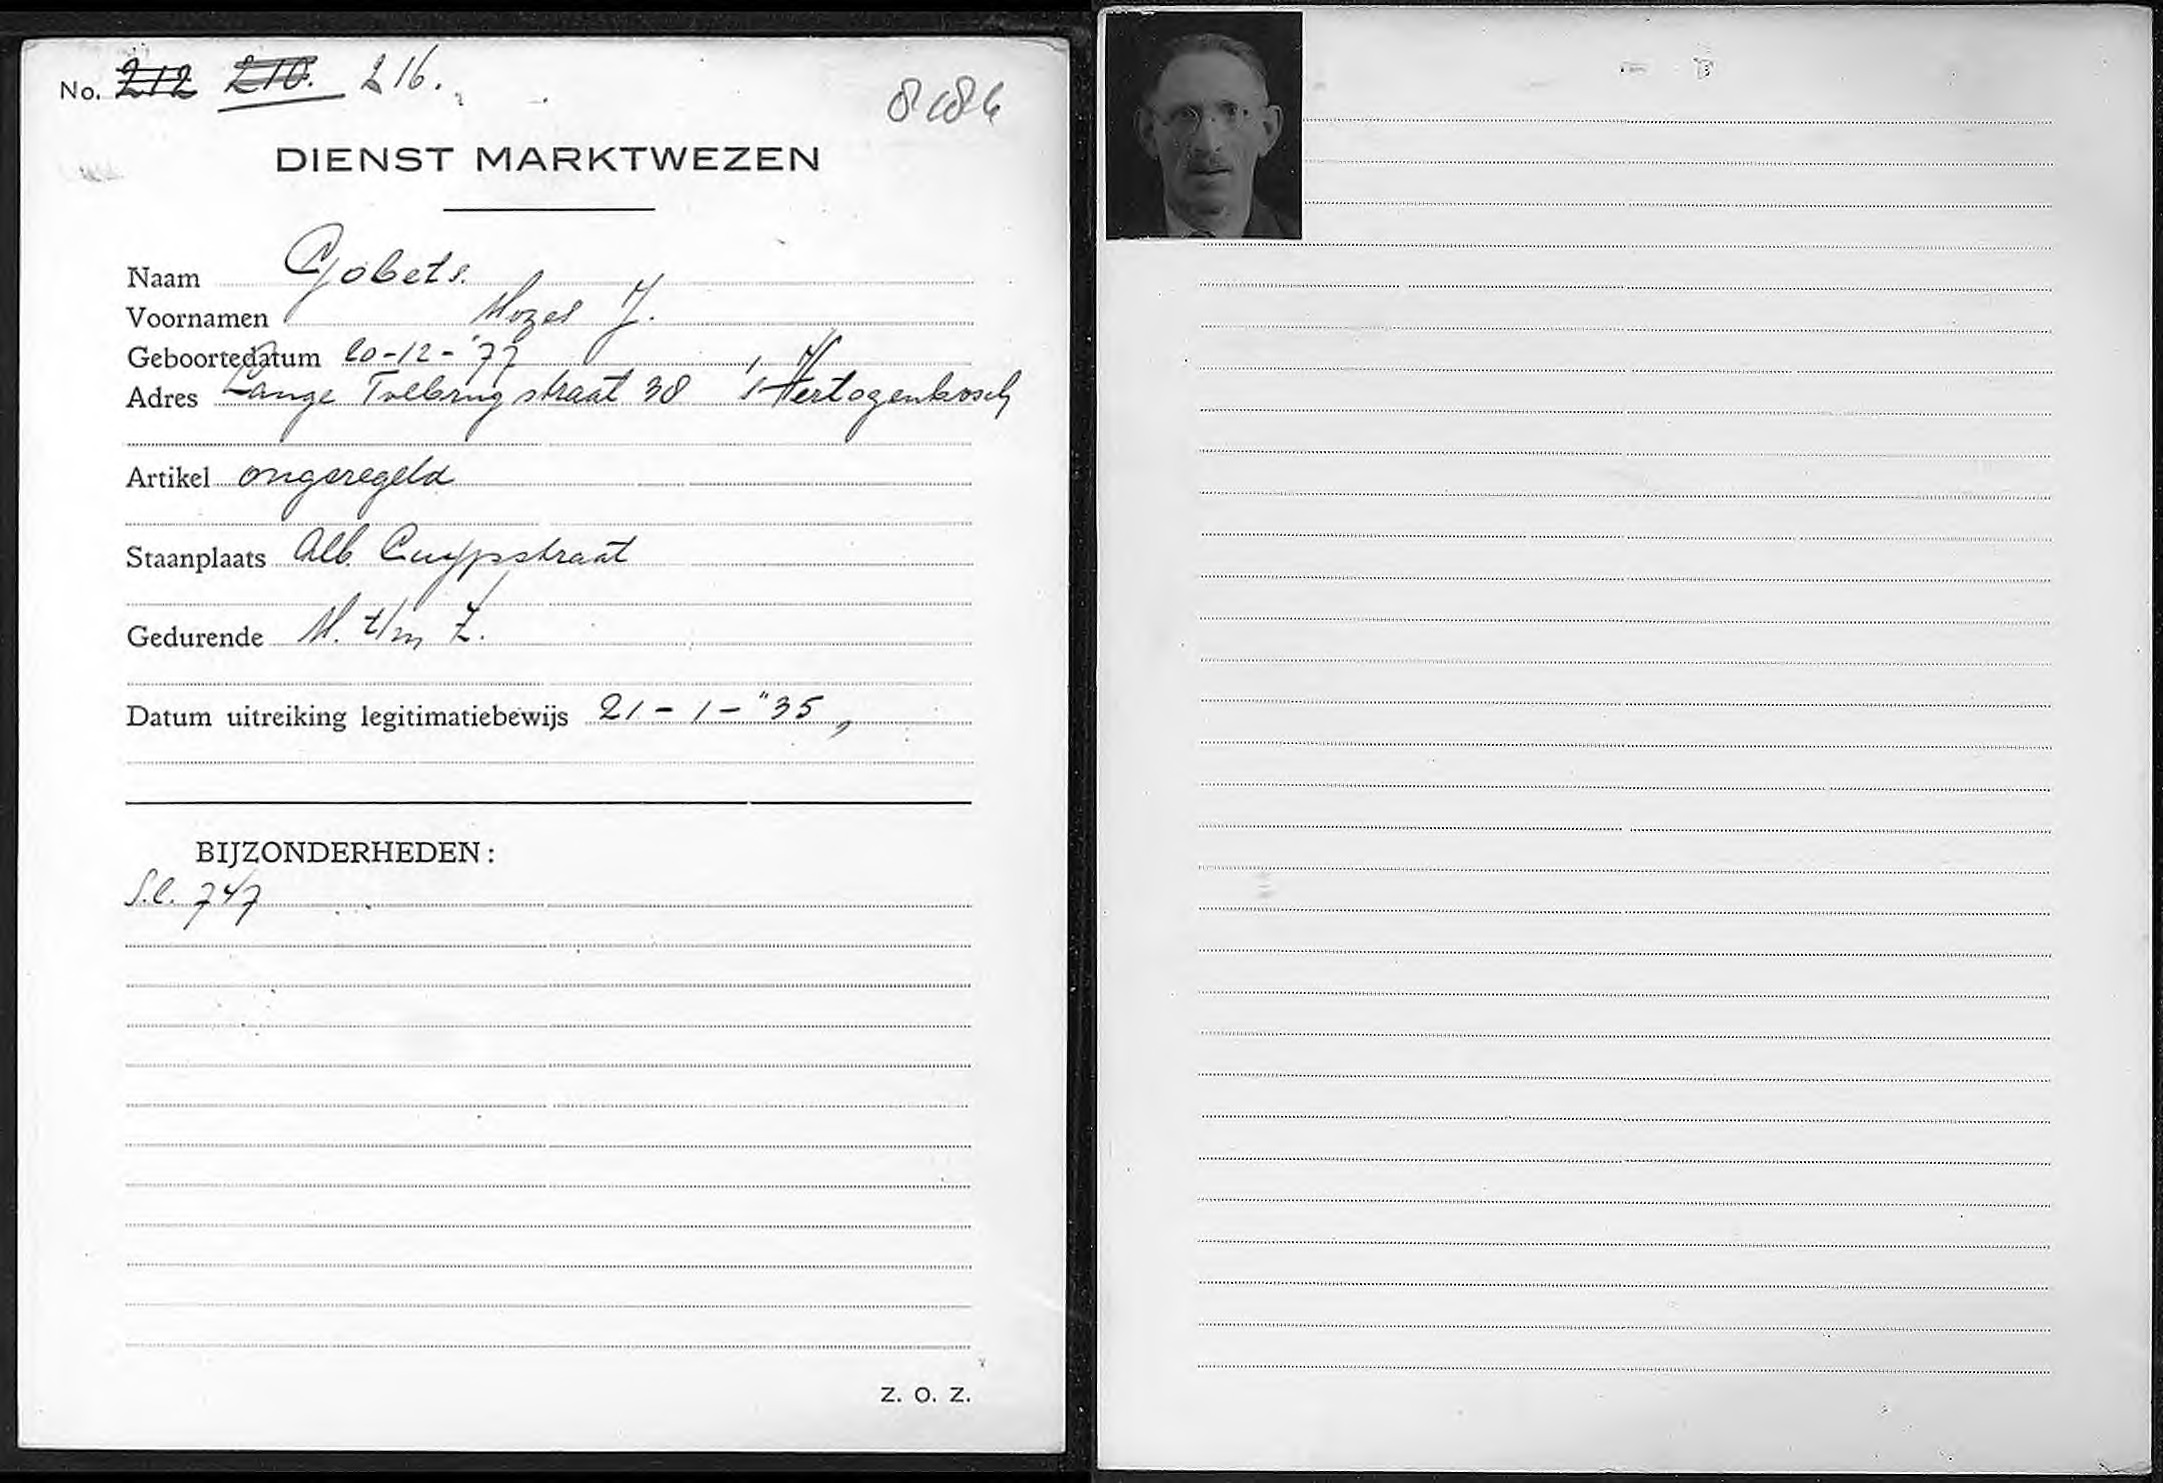 No. 212 210. 216.
8186
DIENST MARKTWEZEN
Naam Gobets.
Voornamen Mozes J.
Geboortedatum 20-12-'77
Adres Lange Tolbrugstraat 38 's Hertogenbosch
Artikel ongeregeld
Staanplaats Alb. Cuypstraat
Gedurende M. t/m Z.
Datum uitreiking legitimatiebewijs 21-1-"35,
BIJZONDERHEDEN:
S.C. 747
Z. O. Z.